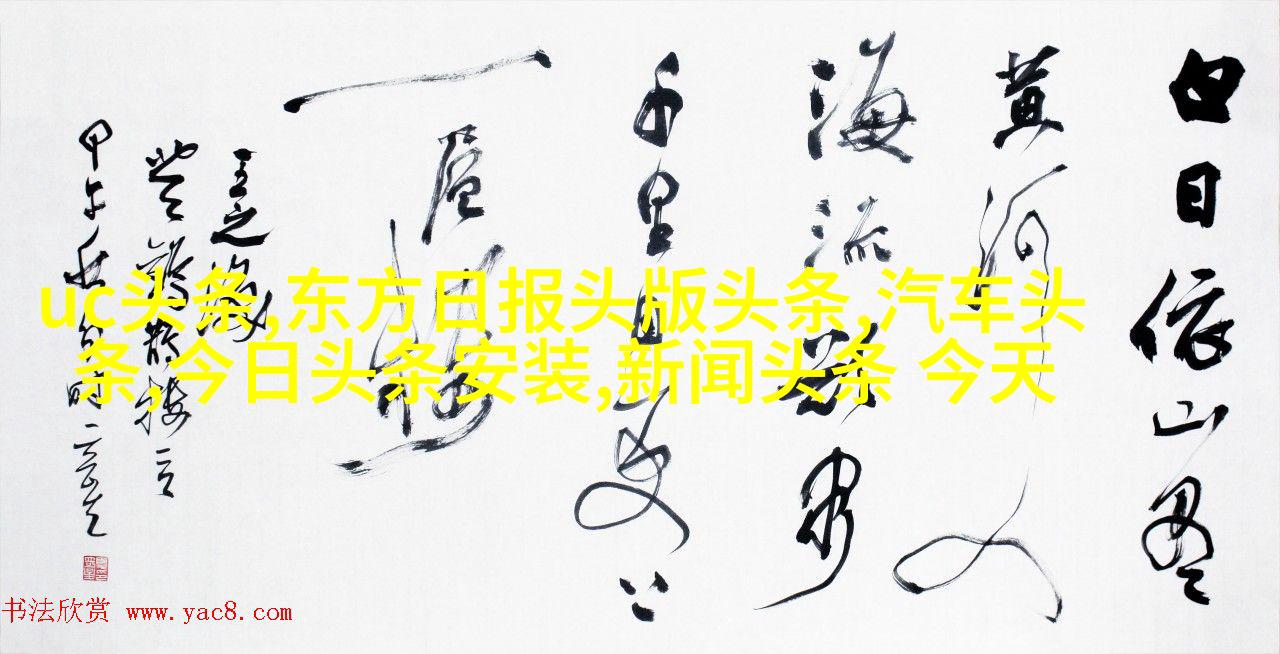 白日依山尽
黄河入
海流欲穷
千里目更上
一层楼
王之涣
登鹳鹊楼
甲午秋
uc头条,东方日报头版头条,汽车头
条,今日头条安装,新闻头条 今天
书法欣赏 www.yac8.com